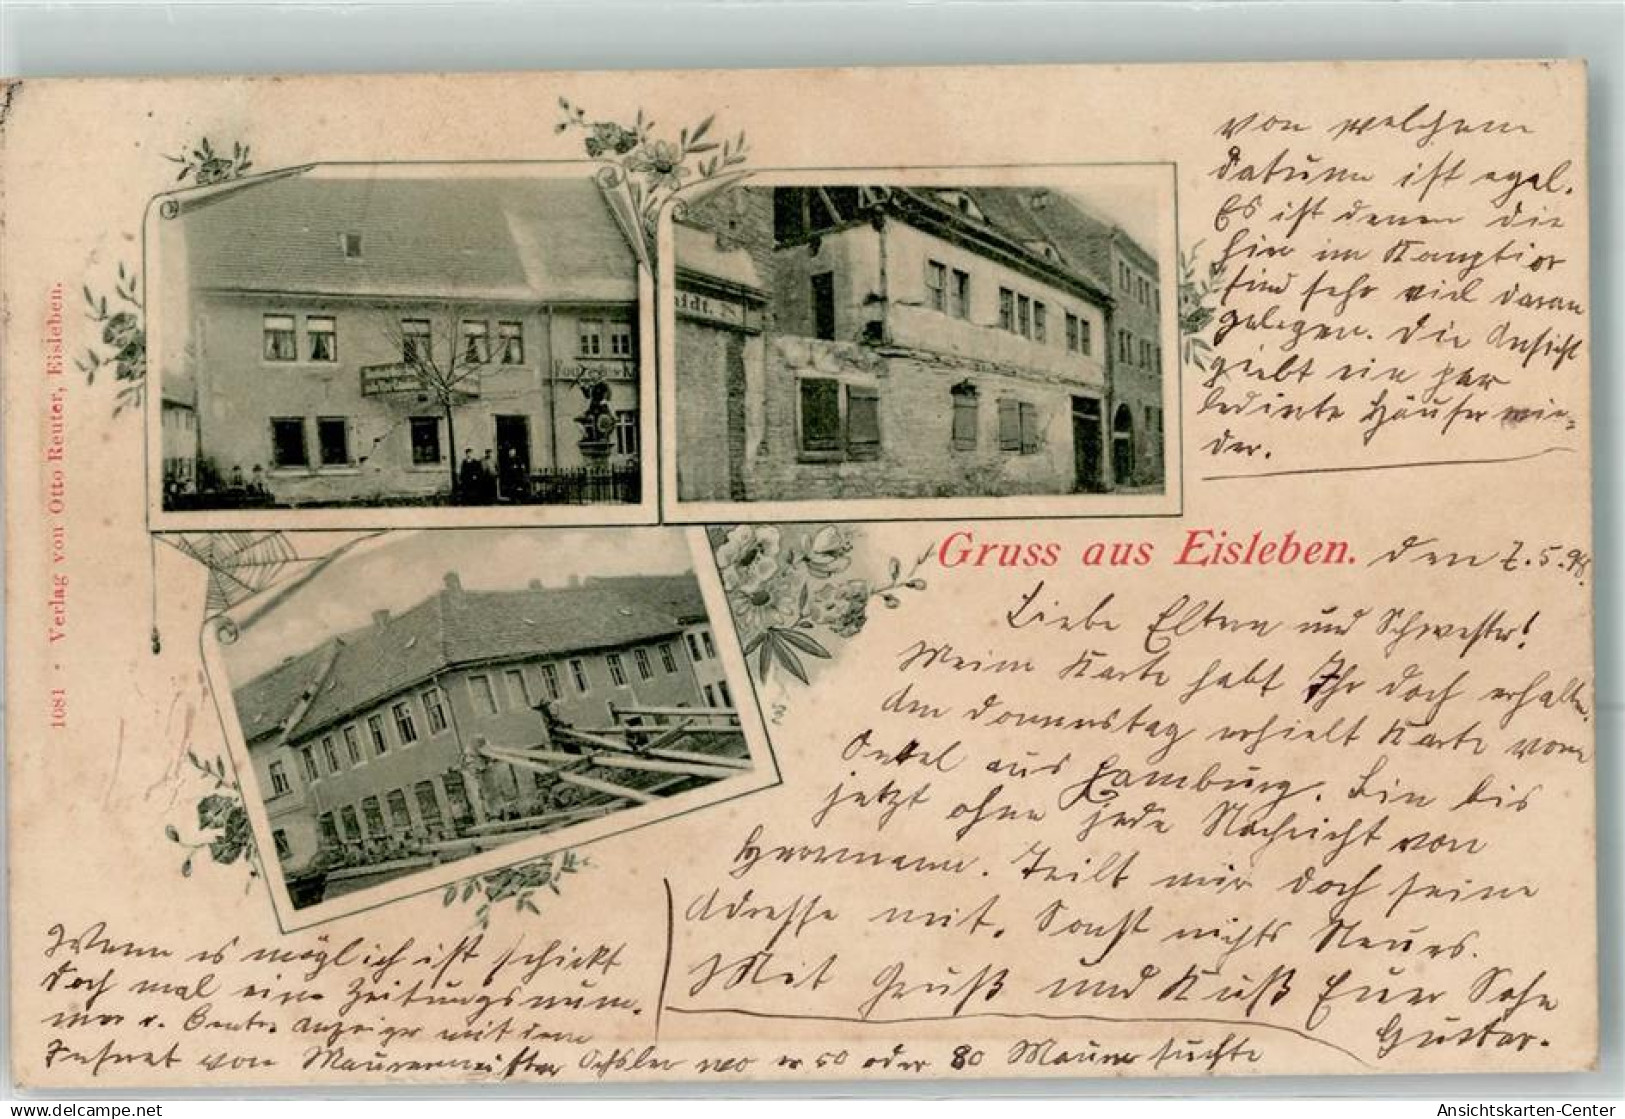 Gruss aus Eisleben.
den 7.5.98.
Liebe Eltern und Schwester!
Meine Karte habt Ihr doch erhalten.
Am Donnerstag erhielt Karte vom
Onkel aus Hamburg. Bin bis
jetzt ohne jede Nachricht von
Herrmann. Teilt mir doch seine
Adresse mit. Sonst nichts Neues.
Mit Gruß und Kuß Euer Sohn
Gustav.
Wenn es möglich ist schickt
doch mal eine Zeitungsnum-
mer v. Anzeiger mit dem
Inserat von Maurermeister wo er 50 oder 80 Maurer suchte
von welchem
Datum ist egal.
Es ist denen die
hier im
sind sehr viel daran
gelegen. Die Ansicht
giebt ein par
Häuser wie-
der.
1081 • Verlag von Otto Reuter, Eisleben.
midt.
oldthing.de
Ansichtskarten-Center